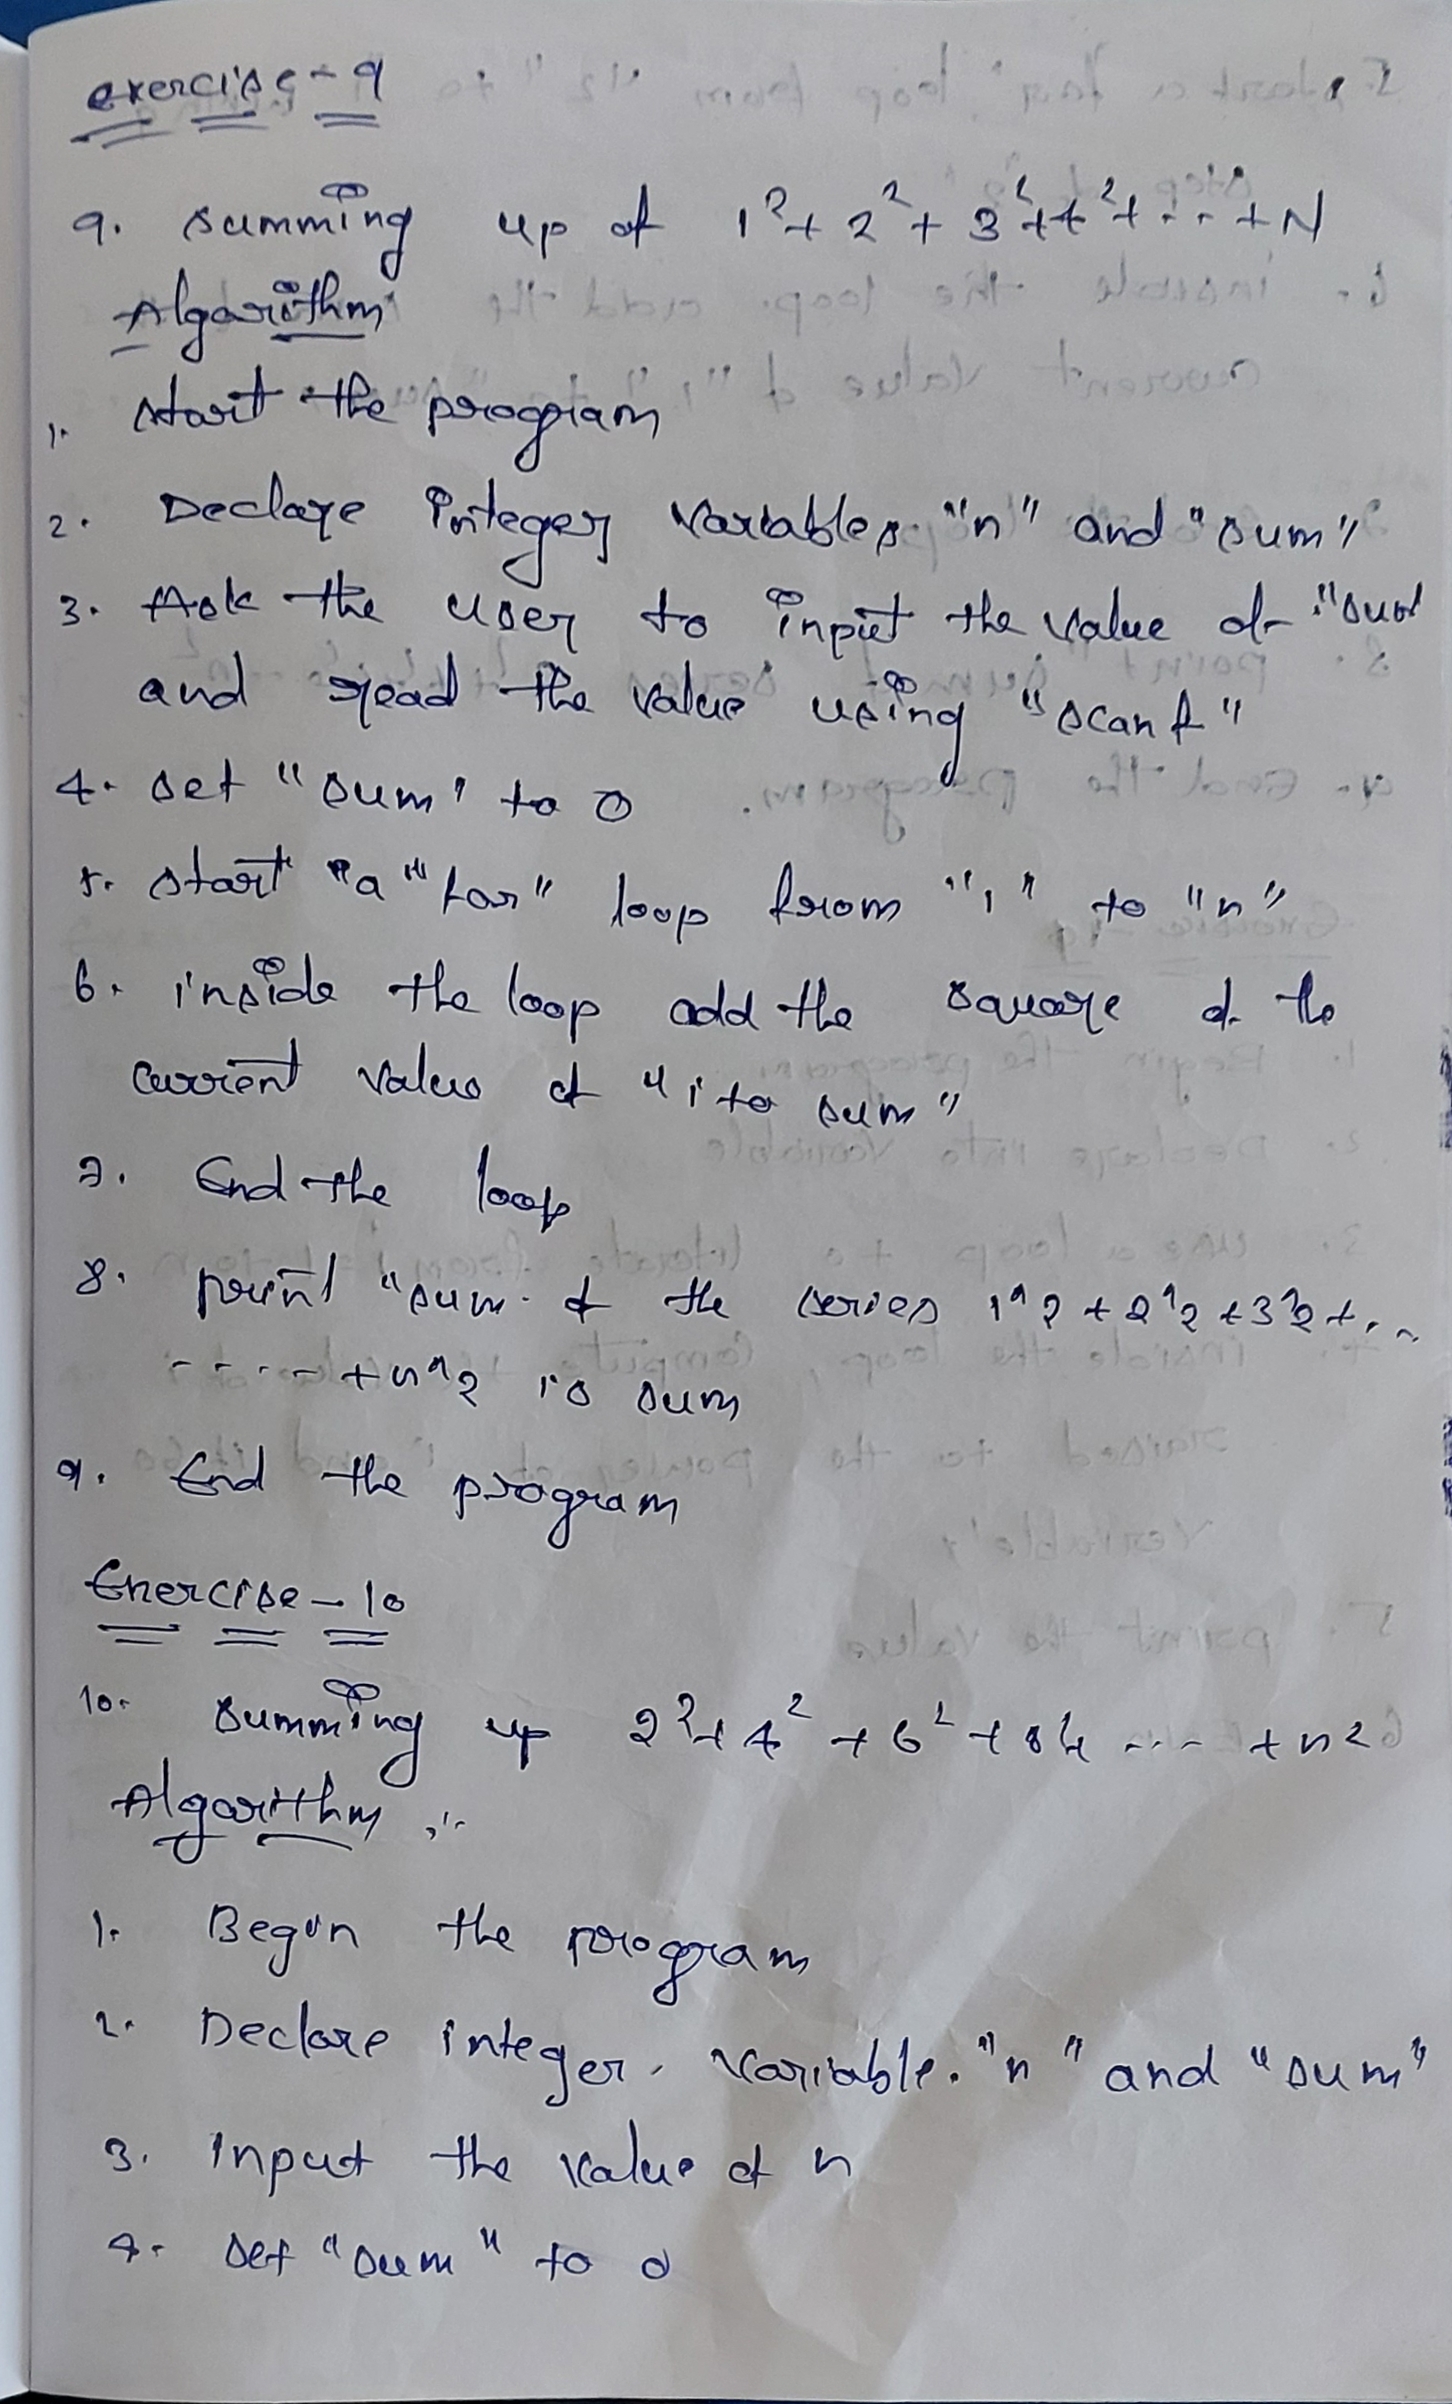 exercise - 9
9. summing up of 1² + 2² + 3² + 4² + ... + N
Algorithm
1. start the program
2. Declare integer variables "n" and "sum"
3. Ask the user to input the value of "
and read the value using "scanf"
4. set "sum" to 0
5. start "a" "for" loop from "1" to "n"
6. inside the loop add the square of the
current value of "i to sum"
7. End the loop
8. print "sum of the series 1^2 + 2^2 + 3^2 + ..
..... + n^2 is sum
9. End the program
Exercise - 10
10. summing up 2² + 4² + 6² + ... + n2
Algorithm :-
1. Begin the program
2. Declare integer variable. "n" and "sum"
3. Input the value of n
4. set "sum" to 0